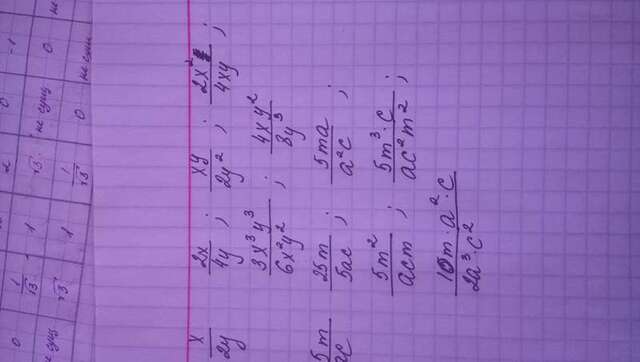 0 1/√3 1 √3 не сущ 0 не
√3 1 1/√3 0 не сущ
x/2y 2x/4y ; xy/2y² ; 2x²/4xy ;
3x³y³/6x²y² ; 4xy²/8y³
5m/ac 25m/5ac ; 5ma/a²c ;
5m²/acm ; 5m³·c/ac²m² ;
10m·a²·c/2a³·c²